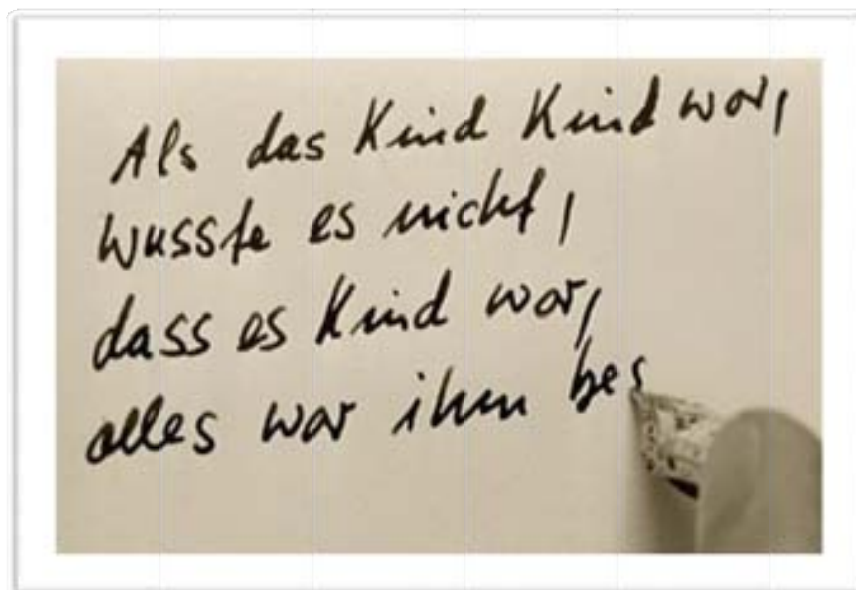 Als das Kind Kind war,
wusste es nicht,
dass es Kind war,
alles war ihm bes